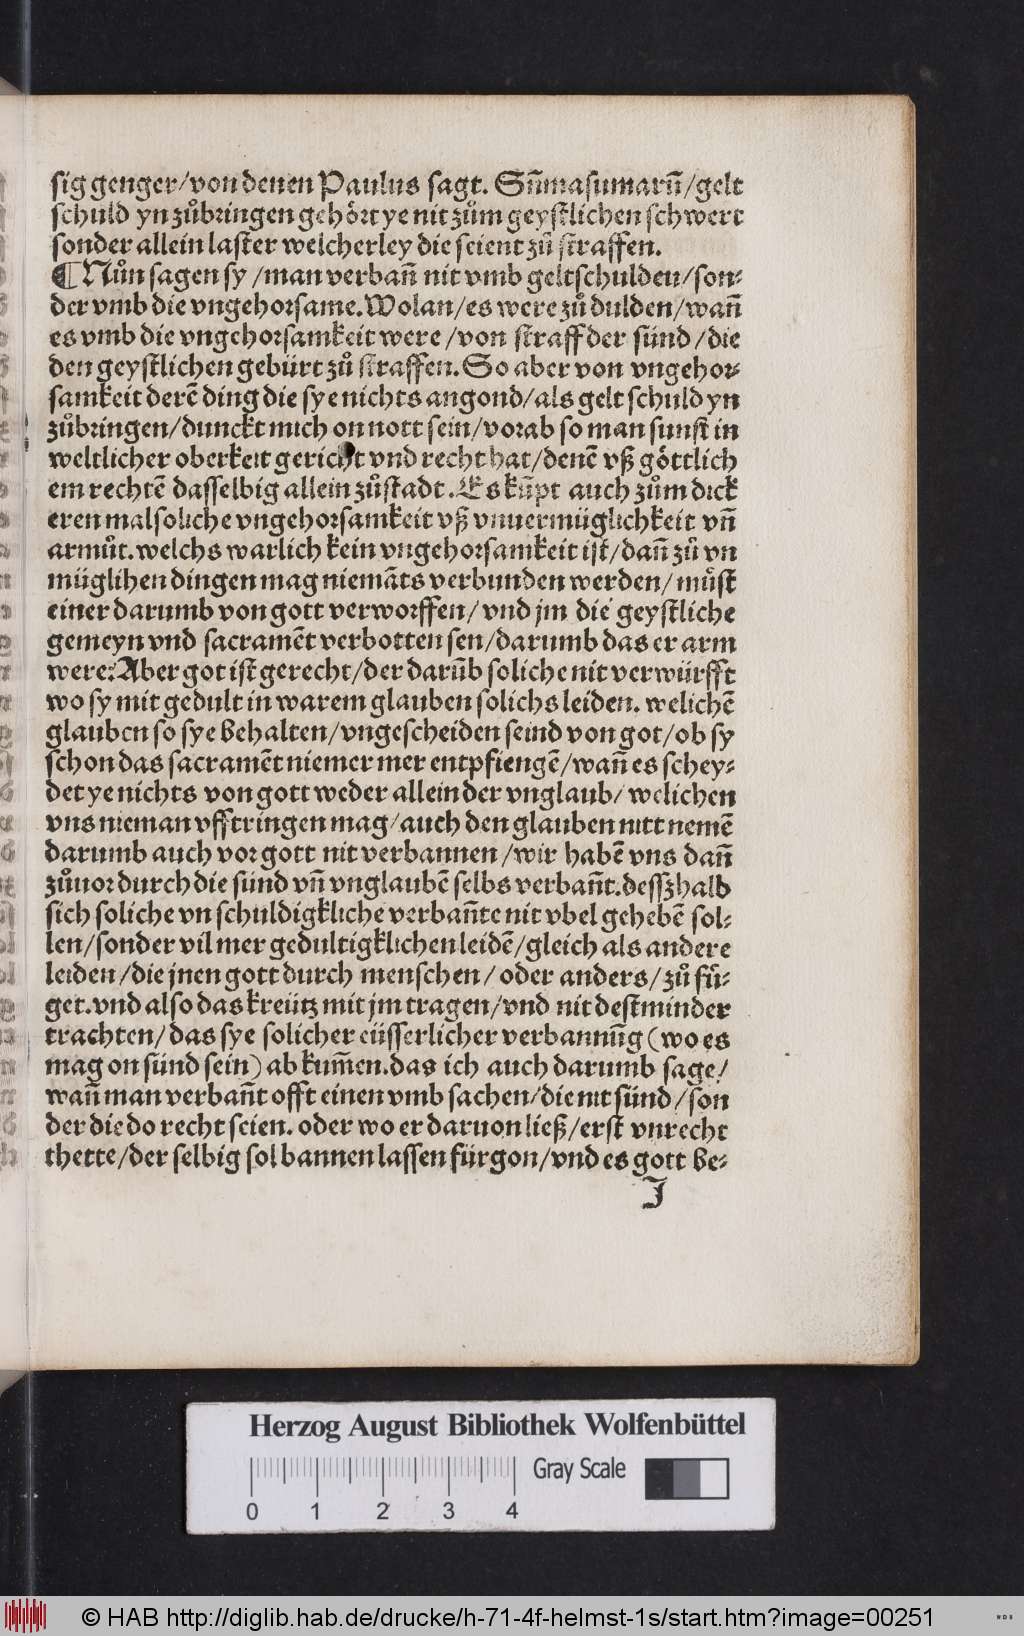 sig genger/von denen Paulus sagt. Sūmasumarū/gelt
schuld yn zůbringen gehört ye nit zům geystlichen schwert
sonder allein laster welcherley die seient zů straffen.
¶Nůn sagen sy/man verbañ nit vmb geltschulden/son⸗
der vmb die vngehorsame. Wolan/es were zů dulden/wañ
es vmb die vngehorsamkeit were/von straff der sünd/die
den geystlichen gebürt zů straffen. So aber von vngehor⸗
samkeit derē ding die sye nichts angond/als gelt schuld yn
zůbringen/dunckt mich on nott sein/vorab so man sunst in
weltlicher oberkeit gericht vnd recht hat/denē vß göttlich
em rechtē dasselbig allein zůstadt. Es kūpt auch zům dick
eren mal soliche vngehorsamkeit vß vnuermüglichkeit vñ
armůt. welchs warlich kein vngehorsamkeit ist/dañ zů vn
müglihen dingen mag niemāts verbunden werden/můst
einer darumb von gott verworffen/vnd jm die geystliche
gemeyn vnd sacramēt verbotten sen/darumb das er arm
were? Aber got ist gerecht/der darūb soliche nit verwürfft
wo sy mit gedult in warem glauben solichs leiden. welichē
glauben so sye behalten/vngescheiden seind von got/ob sy
schon das sacramēt niemer mer entpfiengē/wañ es schey⸗
det ye nichts von gott weder allein der vnglaub/welichen
vns nieman vfftringen mag/auch den glauben nitt nemē
darumb auch vor gott nit verbannen/wir habē vns dañ
zůuor durch die sünd vñ vnglaubē selbs verbañt. desszhalb
sich soliche vnschuldigkliche verbañte nit vbel gehebē sol⸗
len/sonder vil mer gedultigklichen leidē/gleich als andere
leiden/die jnen gott durch menschen/oder anders/zů fů⸗
get. vnd also das kreütz mit jm tragen/vnd nit destminder
trachten/das sye solicher eüsserlicher verbannūg (wo es
mag on sünd sein) ab kum̄en. das ich auch darumb sage/
wañ man verbañt offt einen vmb sachen/die nit sünd/son
der die do recht seien. oder wo er daruon ließ/erst vnrecht
thette/der selbig sol bannen lassen fürgon/vnd es gott be⸗
J
Herzog August Bibliothek Wolfenbüttel
Gray Scale
0 1 2 3 4
© HAB http://diglib.hab.de/drucke/h-71-4f-helmst-1s/start.htm?image=00251